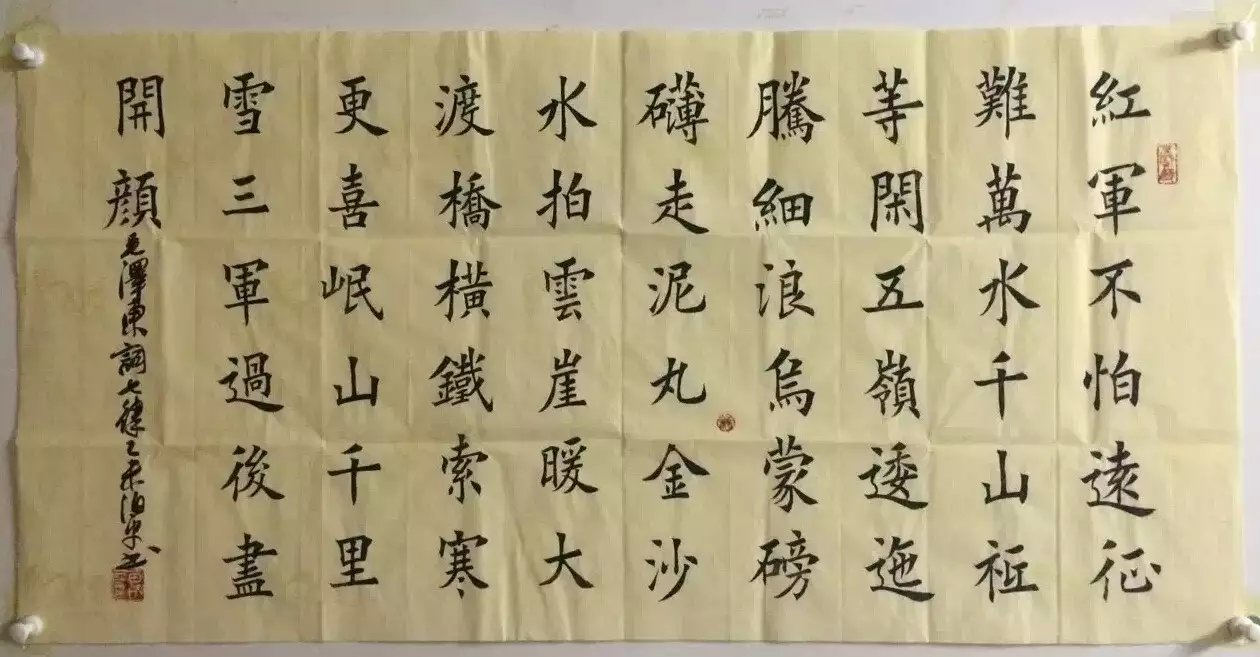 紅軍不怕遠征
難萬水千山祗
等閑五嶺逶迤
騰細浪烏蒙磅
礴走泥丸金沙
水拍雲崖暖大
渡橋橫鐵索寒
更喜岷山千里
雪三軍過後盡
開顔
毛澤東詞七律乙未